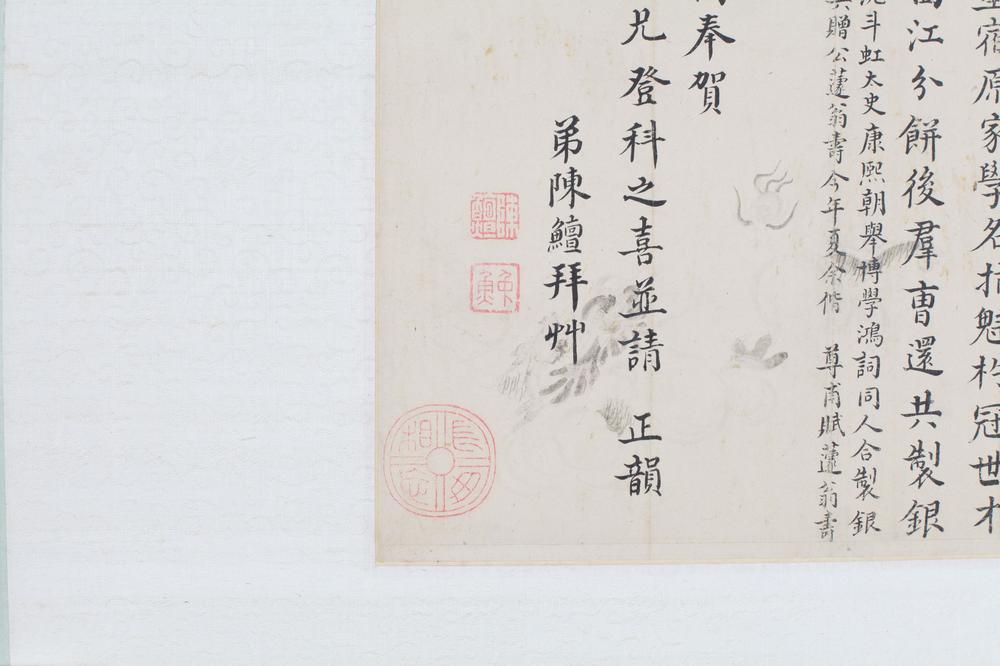 宿原家學名指魁杓冠世才
江分餅後羣曹還共製銀
斗虹太史康熙朝舉博學鴻詞同人合製銀
贈公蘧翁壽今年夏余偕 尊甫賦蘧翁壽
奉賀
兄登科之喜並請 正韻
弟陳鱣拜艸